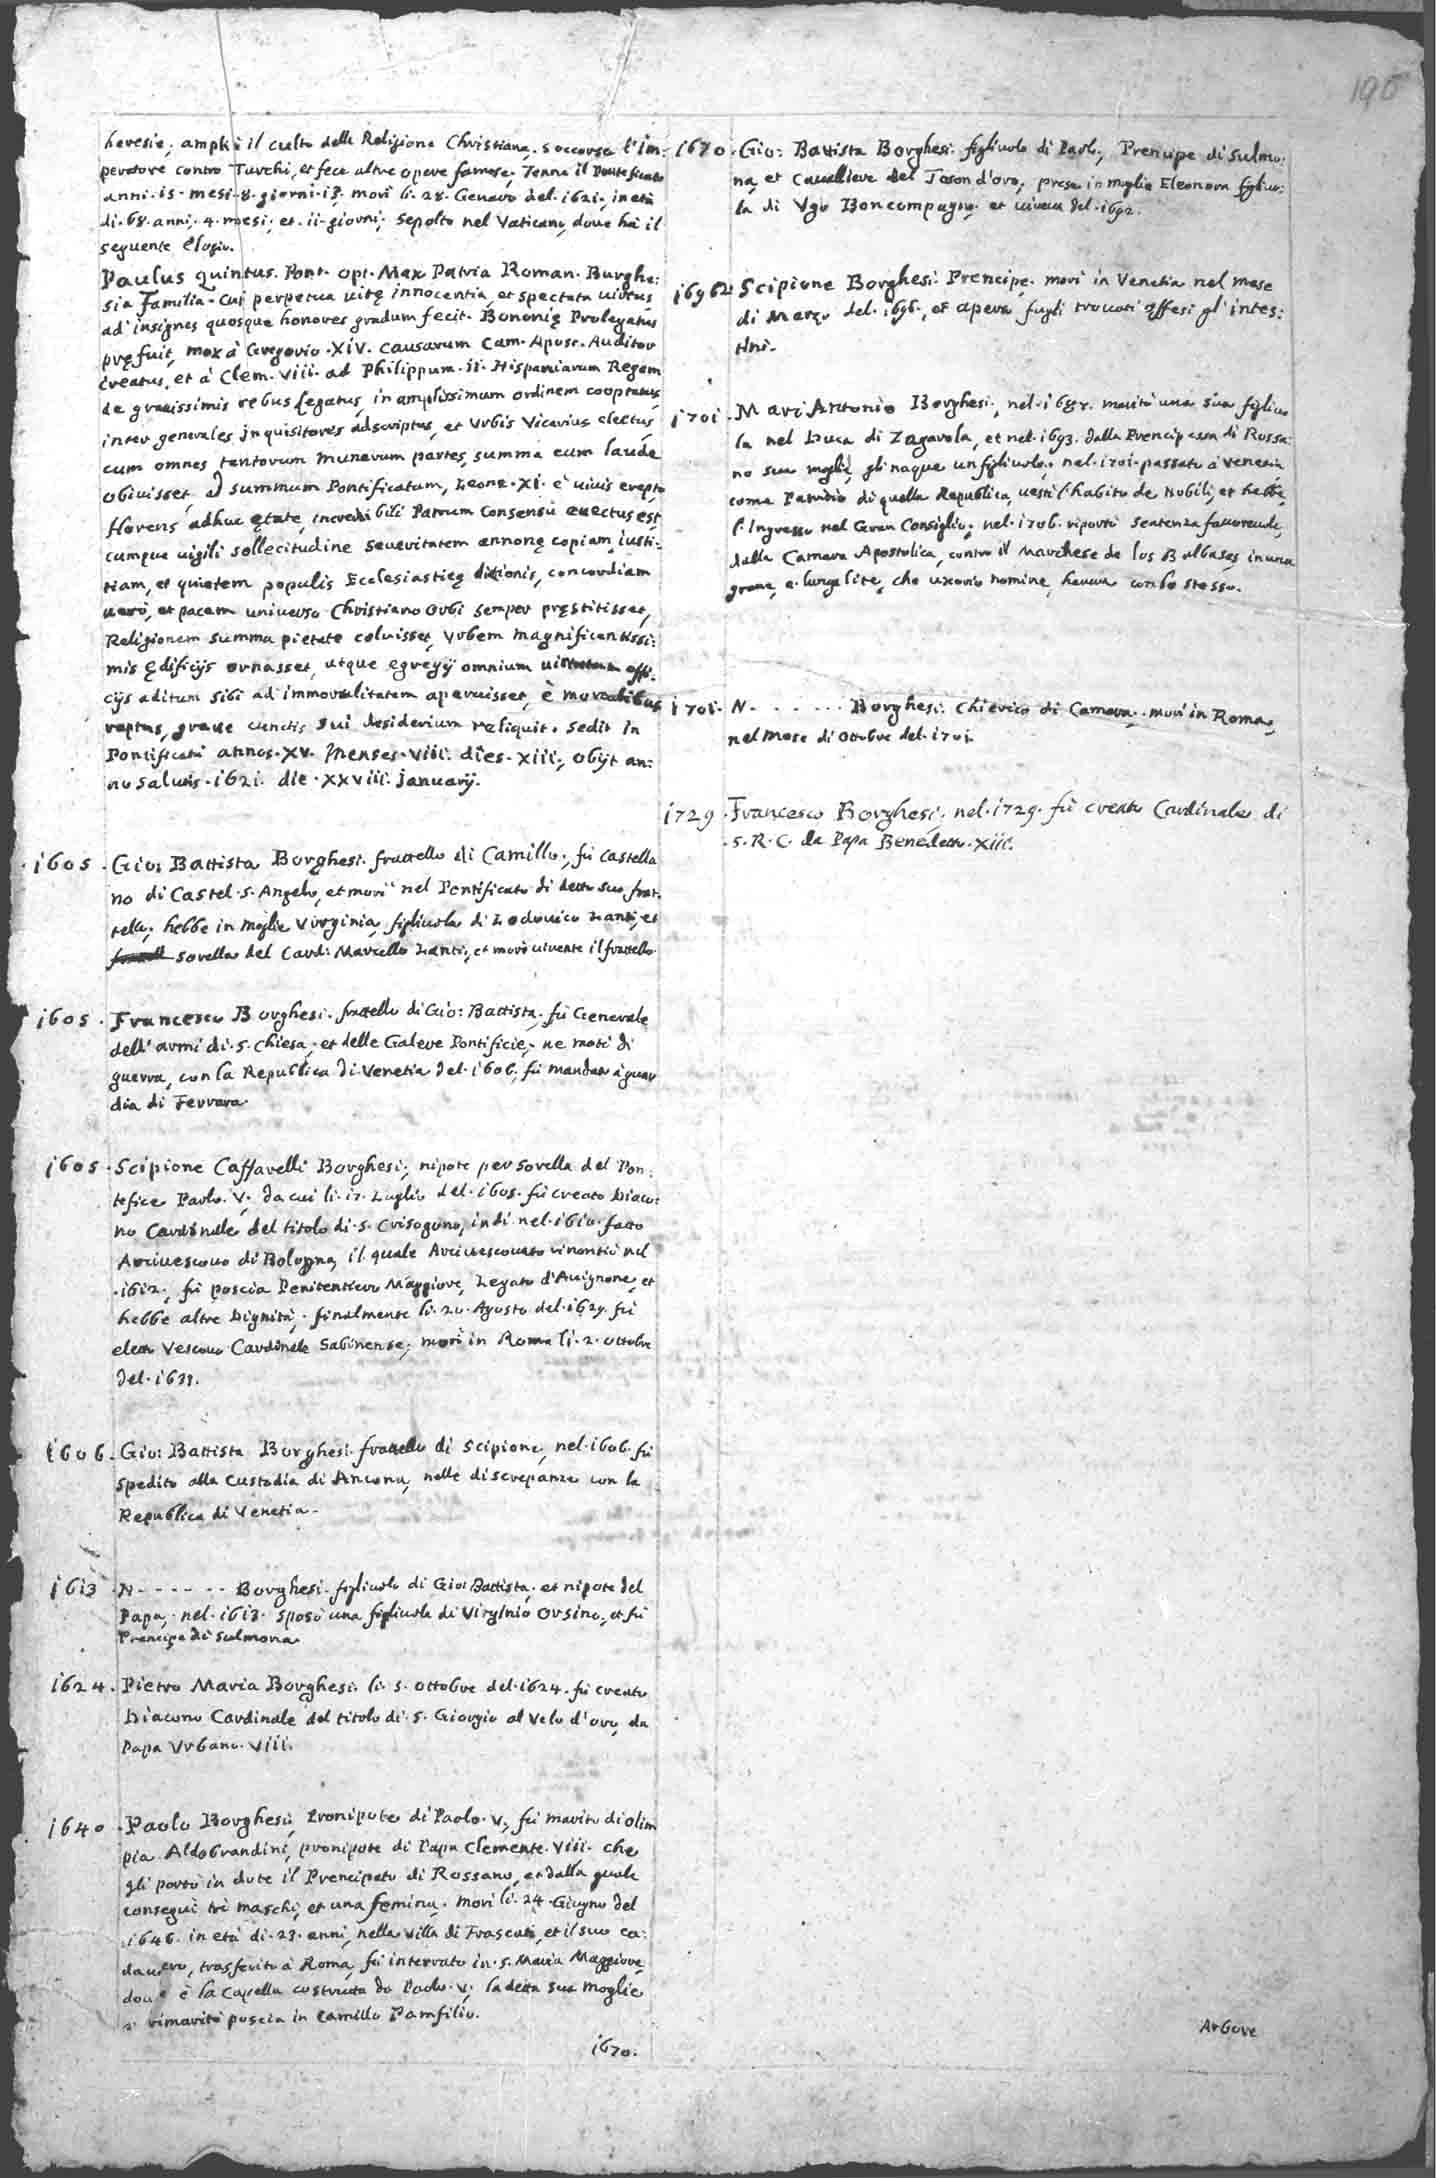 195
heresie, ampliò il culto della Religione Christiana, soccorse l'Im:
peratore contro Turchi, et fece altre opere famose; Tenne il Pontificato
anni.15. mesi.8. giorni.13. morì li.28. Genaro del.1621. in età
di.68. anni. 4. mesi, et.11. giorni, sepolto nel Vaticano, doue hà il
seguente Elogio.
Paulus quintus. Pont. opt. Max Patria Roman. Burghe:
sia Familia. cui perpetua uitę innocentia, et spectata uirtus
ad insignes quosque honores gradum fecit. Bononię Prolegatus
pręfuit, mox à Gregorio.XIV. causarum Cam. Apost. Auditor
creatus, et à Clem.VIII. ad Philippum.II. Hispaniarum Regem
de grauissimis rebus legatus, in amplissimum ordinem cooptatus,
inter generales inquisitores adscriptus, et Vrbis Vicarius electus,
cum omnes tantorum munerum partes, summa cum laude
obiuisset, ad summum Pontificatum, Leone.XI. è uiuis erepto
florens adhuc ętate, incredibili Patrum Consensu euectus est,
cumque uigili sollecitudine seueritatem annonę copiam, iusti:
tiam, et quietem populis Ecclesiasticę ditionis, concordiam
uerò, et pacem uniuerso Christiano Orbi semper pręstitisset,
Religionem summa pietate coluisset, Vrbem magnificentissi:
mis ędificijs ornasset, utque egregij omnium uirtutum offi:
cijs aditum sibi ad immortalitatem aperuisset, è mortalibus
raptus, graue cunctis sui desiderium reliquit. Sedit in
Pontificatu annos.XV. Menses.VIII. dies.XIII., obijt an:
no Salutis.1621. die.XXVIII. January.
.1605. Gio: Battista Borghesi. frattello di Camillo., fù Castella
no di Castel.S. Angelo, et morì nel Pontificato di detto suo frat:
tello, hebbe in moglie Virginia, figliuola di Lodouico Lanti, et
sorella del Card: Marcello Lanti, et morì uiuente il frattello.
1605. Francesco Borghesi. frattello di Gio: Battista. fù Generale
dell'armi di.S. Chiesa, et delle Galere Pontificie, ne moti di
guerra, con la Republica di Venetia del.1606. fù mandato à guar
dia di Ferrara.
1605. Scipione Caffarelli Borghesi, nipote per sorella del Pon:
tefice Paolo.V., da cui li.17. Luglio del.1605. fù creato Diaco:
no Cardinale del titolo di.S. Crisogono, indi nel.1610. fatto
Arciuescouo di Bologna, il quale Arciuescouato rinontiò nel
.1612., fù poscia Penitentiero Maggiore, Legato d'Auignone, et
hebbe altre Dignità, finalmente li.20. Agosto del.1629. fù
eletto Vescouo Cardinale Sabinense; morì in Roma li.2. ottobre
del.1633.
1606. Gio: Battista Borghesi. frattello di Scipione, nel.1606. fù
spedito alla Custodia di Ancona, nelle discrepanze con la
Republica di Venetia.
1613. N. - - - - - - Borghesi. figliuolo di Gio: Battista. et nipote del
Papa, nel.1613. sposò una figliuola di Virginio Orsino, et fù
Prencipe di Sulmona
1624. Pietro Maria Borghesi. li.5. ottobre del.1624. fù creato
Diacono Cardinale del titolo di.S. Giorgio al Velo d'oro, da
Papa Vrbano.VIII.
1640. Paolo Borghesi, Pronipote di Paolo.V., fù marito di Olim
pia Aldobrandini, pronipote di Papa Clemente.VIII. che
gli portò in dote il Prencipato di Rossano, et dalla quale
conseguì trè maschi, et una femina. Morì li.24. Giugno del
.1646. in età di.23. anni, nella Villa di Frascati, et il suo ca:
dauero, trasferito à Roma, fù interrato in.S. Maria Maggiore,
doue è la Capella costrutta da Paolo.V. la detta sua moglie
si rimaritò poscia in Camillo Pamfilio.
1670.
1670. Gio: Battista Borghesi. figliuolo di Paolo, Prencipe di Sulmo:
na, et Caualliere del Toson d'oro, prese in moglie Eleonora figliuo:
la di Vgo Boncompagno. et uiueua del.1692.
1696. Scipione Borghesi. Prencipe. morì in Venetia nel mese
di Marzo del.1696., et aperto fugli trouati offesi gl'intes:
tini.
1701. Marc'Antonio Borghesi, nel.1687. maritò una sua figliuo
la nel Duca di Zagarola, et nel.1693. dalla Prencipessa di Rossa:
no sua moglie, gli naque un figliuolo, nel.1701. passato à Venetia,
come Patricio di quella Republica, uestì l'habito de Nobili, et hebbe
l'Ingresso nel Gran Consiglio, nel.1706. riportò sentenza fauoreuole,
dalla Camera Apostolica, contro il Marchese de los Balbases, in una
graue, e lunga lite, che uxorio nomine, haueua con lo stesso.
1701. N. - - - - - - Borghesi. Chierico di Camera, morì in Roma,
nel mese di Ottobre del.1701.
1729. Francesco Borghesi, nel.1729. fù creato Cardinale di
.S.R.C. da Papa Benedetto.XIII.
Arbore